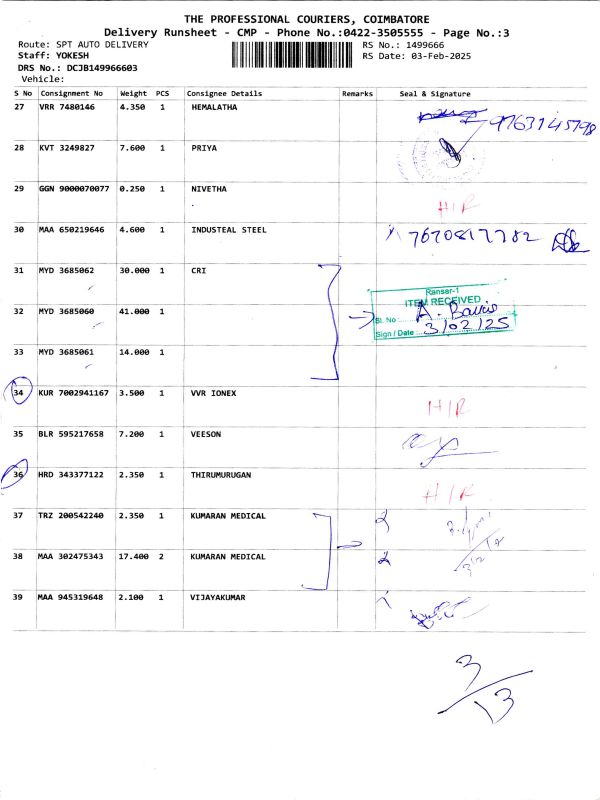 THE PROFESSIONAL COURIERS, COIMBATORE
Delivery Runsheet - CMP - Phone No.:0422-3505555 - Page No.:3
Route: SPT AUTO DELIVERY RS No.: 1499666
Staff: YOKESH RS Date: 03-Feb-2025
DRS No.: DCJB149966603
Vehicle:
S No Consignment No Weight PCS Consignee Details Remarks Seal & Signature
27 VRR 7480146 4.350 1 HEMALATHA 9763145798
28 KVT 3249827 7.600 1 PRIYA
29 GGN 9000070077 0.250 1 NIVETHA H/R
30 MAA 650219646 4.600 1 INDUSTEAL STEEL 7670817782
31 MYD 3685062 30.000 1 CRI
Ransar-1
ITEM RECEIVED
32 MYD 3685060 41.000 1 Sl. No
Sign / Date 3/02/25
33 MYD 3685061 14.000 1
34 KUR 7002941167 3.500 1 VVR IONEX H/R
35 BLR 595217658 7.200 1 VEESON
36 HRD 343377122 2.350 1 THIRUMURUGAN H/R
37 TRZ 200542240 2.350 1 KUMARAN MEDICAL
38 MAA 302475343 17.400 2 KUMARAN MEDICAL
39 MAA 945319648 2.100 1 VIJAYAKUMAR
3/13